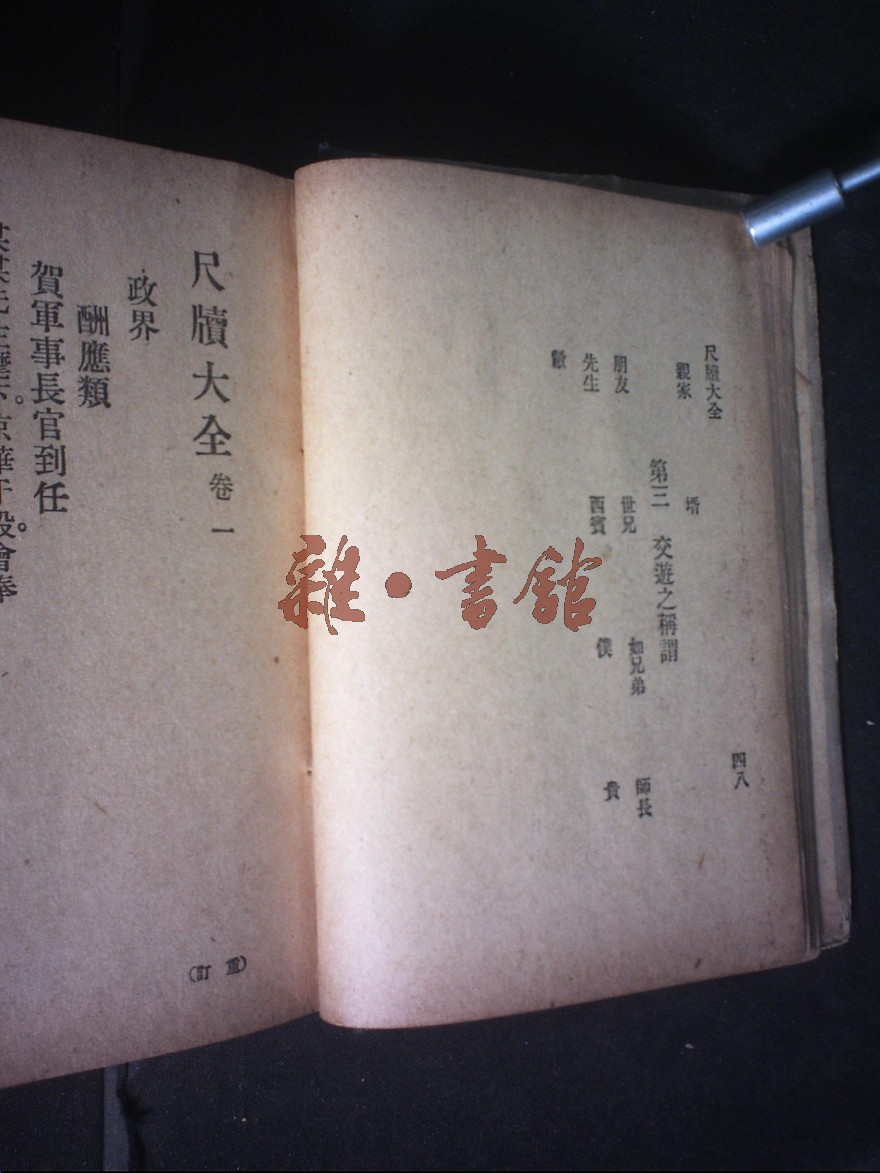 尺牘大全 四八
親家 壻
第三 交遊之稱謂
朋友 世兄 如兄弟 師長
先生 西賓 僕 貴
敝
尺牘大全 卷一 (重訂)
政界
酬應類
賀軍事長官到任
某某先生麾下。京華于役。曾奉
雜·書館